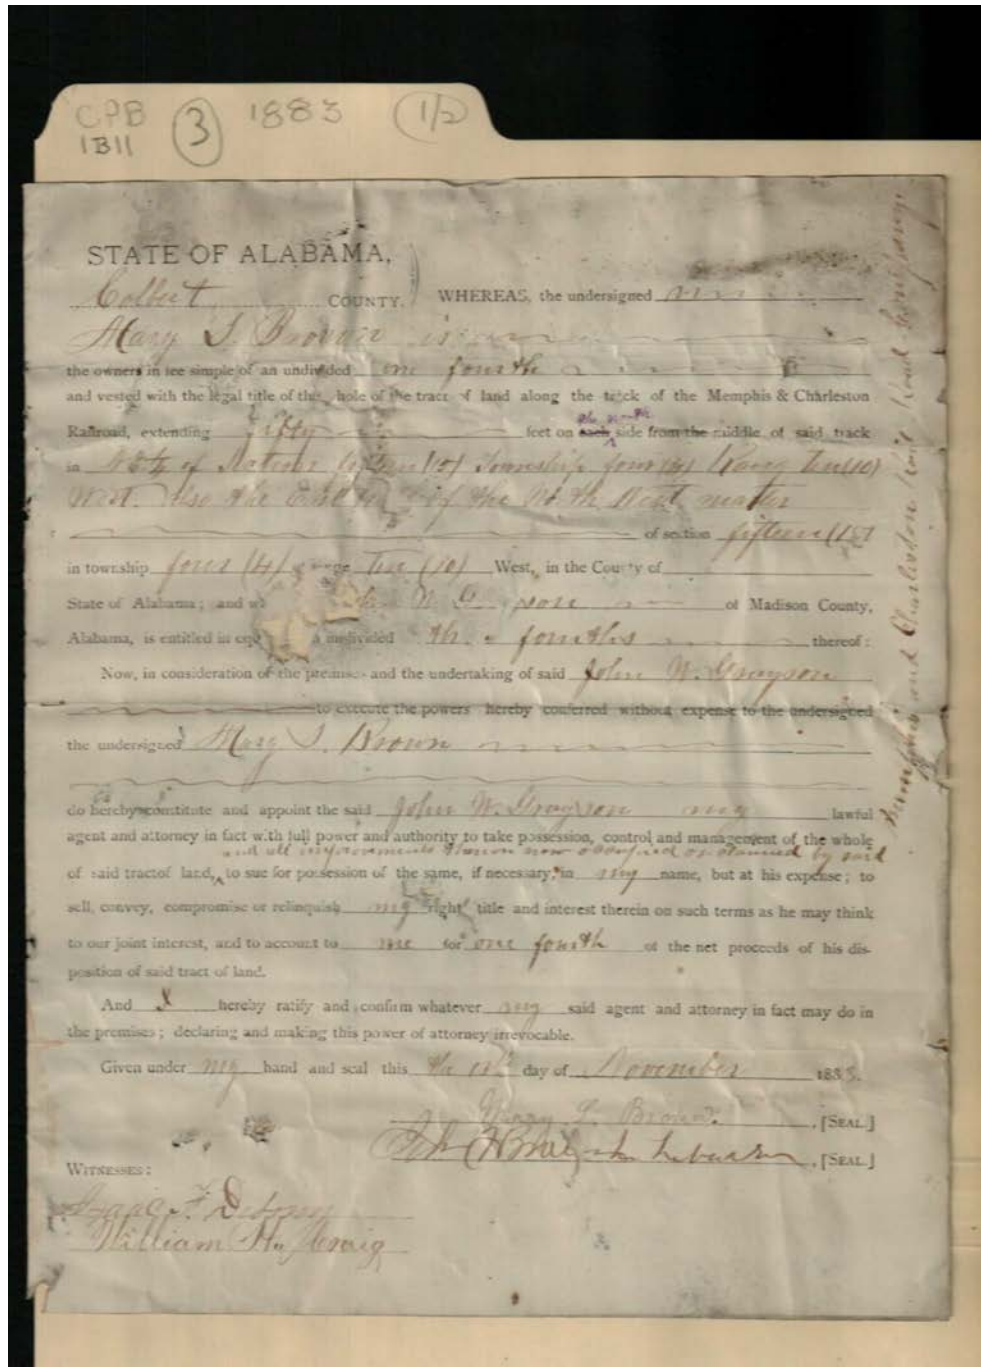 CPB 3 1883 1/2
1B11
STATE OF ALABAMA,
Colbert COUNTY. WHEREAS, the undersigned
Mary S. Brown is
the owners in fee simple of an undivided one fourth
and vested with the legal title of the hole of the tract of land along the track of the Memphis & Charleston
Railroad, extending fifty feet on each side from the middle of said track
the north
in of Section (15) Township four (4) Range Ten (10)
West. Also the East of the North West
of section fifteen (15)
in township four (4) range Ten (10) West, in the County of
State of Alabama; and John W. Grayson of Madison County,
Alabama, is entitled in undivided fourths thereof:
Now, in consideration of the premises and the undertaking of said John W. Grayson
to execute the powers hereby conferred without expense to the undersigned
the undersigned Mary S. Brown
do hereby constitute and appoint the said John W. Grayson my lawful
agent and attorney in fact with full power and authority to take possession, control and management of the whole
and all improvements thereon now occupied or claimed by said
of said tract of land, to sue for possession of the same, if necessary, in my name, but at his expense; to
sell, convey, compromise or relinquish my right title and interest therein on such terms as he may think
to our joint interest, and to account to me for one fourth of the net proceeds of his dis-
position of said tract of land.
And I hereby ratify and confirm whatever my said agent and attorney in fact may do in
the premises; declaring and making this power of attorney irrevocable.
Given under my hand and seal this the day of November 1883.
Mary S. Brown, [SEAL.]
, [SEAL.]
WITNESSES:
Isaac F.
William H. Craig
Memphis and Charleston Rail Road Company